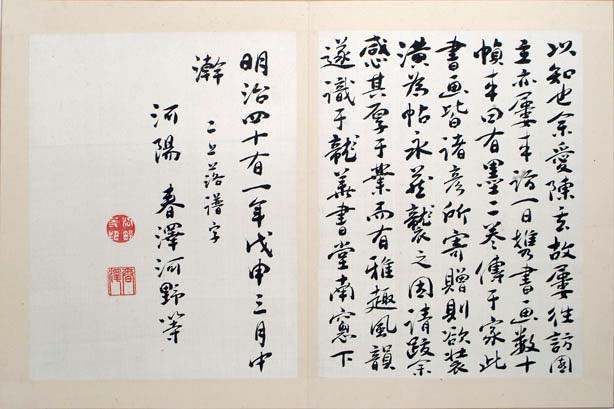 以知也余愛陳玄故屢往訪
主亦屢来訪一日携書画数十
幀来曰有墨二巻傳于家此
書画皆諸彦所寄贈則欲装
潢為帖永蔵襲之因請跋余
感其厚于業而有雅趣風韻
遂識于龍華書堂南窓下
明治四十有一年戊申三月中
澣 二上落譜字
河陽 春澤河野等